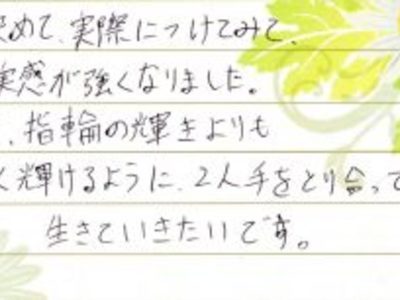 決めて、実際につけてみて、
実感が強くなりました。
、指輪の輝きよりも
く輝けるように、2人手をとり合って
生きていきたいです。